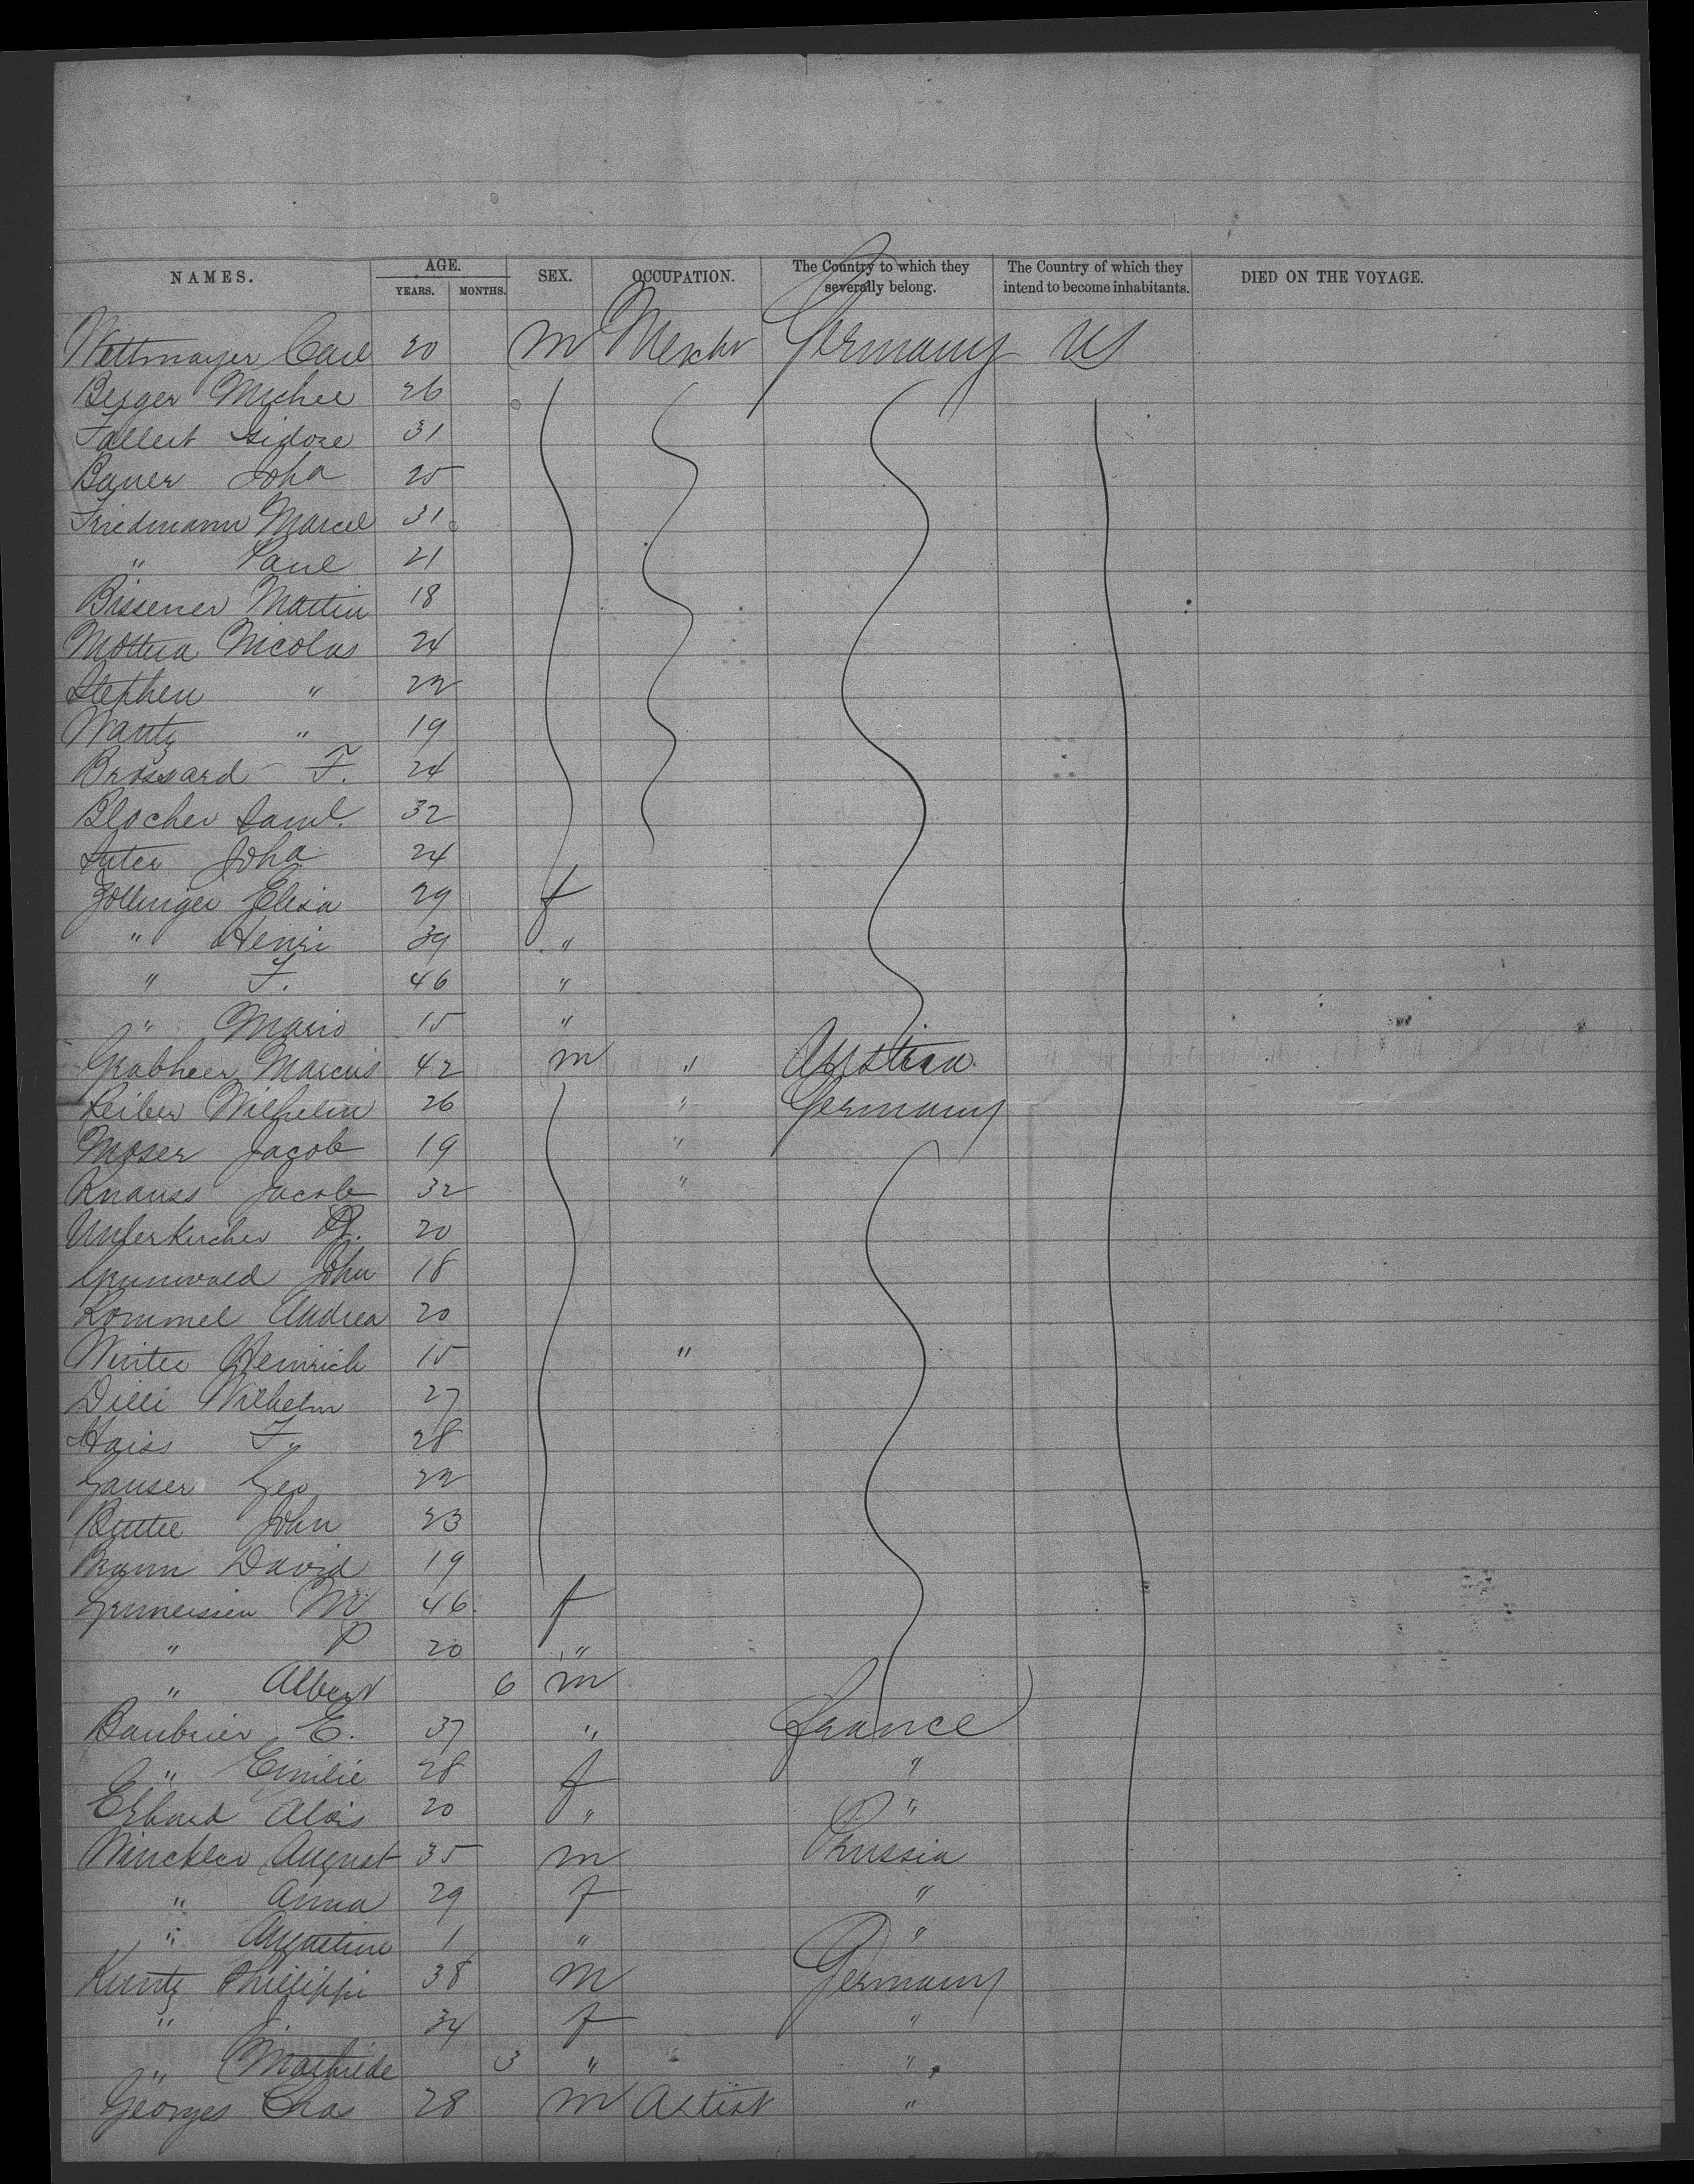 NAMES. AGE. SEX. OCCUPATION. The Country to which they severally belong. The Country of which they intend to become inhabitants. DIED ON THE VOYAGE.
YEARS. MONTHS.
Wettmayer Carl 20 m Mercht Germany US
Berger Michel 26
Fallert Isidore 31
Bauer Joha 25
Friedmann Marcel 31
" Paul 21
Bissener Martin 18
Nicolas 24
Stephen " 22
Wantz " 19
Brossard F. 24
Blocher Saml. 32
Suter Joha 24
Zollinger Elisa 29 f
" Henri 39 "
" F. 46 "
" Marie 15 "
Grabherr Marcus 42 m " Austria
Leiber Wilhelm 26 " Germany
Moser Jacob 19 "
Knauss Jacob 32 "
Unterkircher 20
Grunwald John 18
Rommel Andrea 20
Winter Heinrich 15 "
Dilli Wilhelm 27
Haiss F. 28
Ganser Geo 22
John 23
Braun David 19
M 46 f
" P 20 "
" Albert 6 m
E. 37 " France
" Emilie 28 f "
Erhard Alois 20 " "
Winckler August 35 m Prussia
" Anna 29 f "
" Augustine 1 " "
Kuntz Phillippi 38 m Germany
" 34 f "
" Mathilde 3 " "
Georges Chas 28 m Artist "